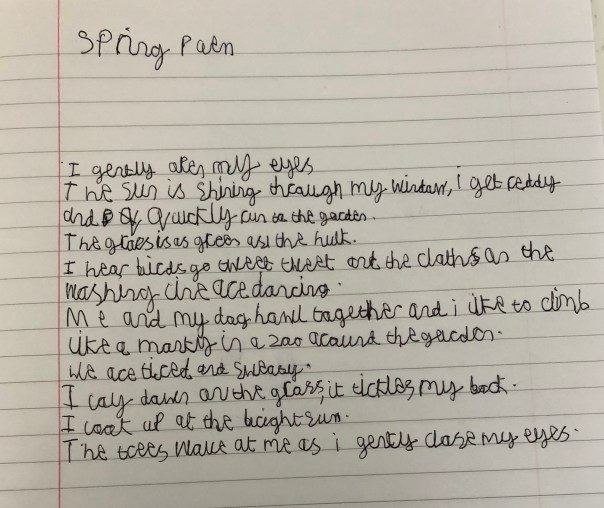 Spring Poem
I gently open my eyes
The sun is shining through my window, i get reddy
and quickly run to the garden.
The grass is as green as the hulk.
I hear birds go tweet tweet and the cloths on the
washing line are dancing.
Me and my dog howl together and i like to climb
like a monkey in a zoo around the garden.
We are tired and sweasy.
I lay down on the grass, it tickles my back.
I look up at the bright sun.
The trees wave at me as i gently close my eyes.